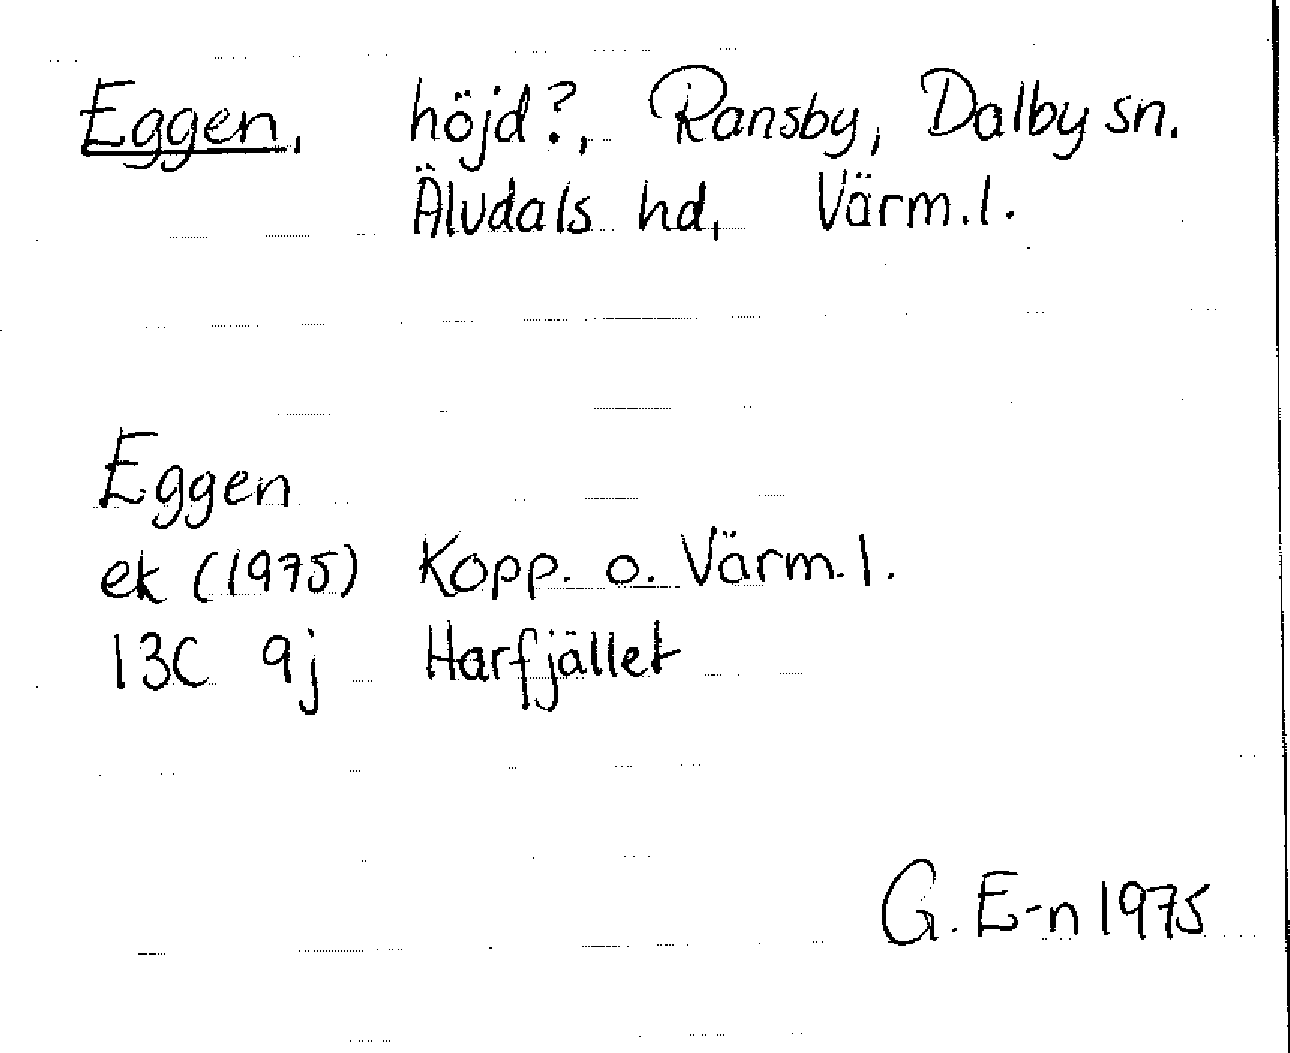 Eggen, höjd?, Ransby, Dalby sn.
Älvdals hd, Värm.l.
Eggen
ek (1975) Kopp. o. Värm.l.
13C 9j Harfjället
G. E-n 1975